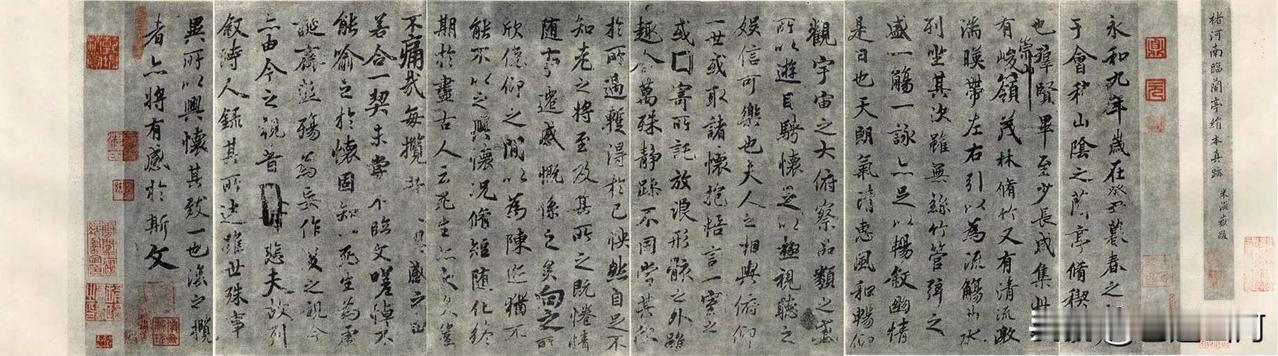 褚河南臨蘭亭絹本真跡 米海嶽跋
永和九年歲在癸丑暮春之
于會稽山陰之蘭亭脩稧
也羣賢畢至少長咸集此
有崇山峻領茂林脩竹又有清流激
湍暎帶左右引以為流觴曲水
列坐其次雖無絲竹管弦之
盛一觴一詠亦足以暢敘幽情
是日也天朗氣清惠風和暢仰
觀宇宙之大俯察品類之盛
所以遊目騁懷足以極視聽之
娛信可樂也夫人之相與俯仰
一世或取諸懷抱悟言一室之
或因寄所託放浪形骸之外雖
趣舍萬殊靜躁不同當其欣
於所遇蹔得於己怏然自足不
知老之將至及其所之既惓情
隨事遷感慨係之矣向之所
欣俛仰之間以為陳迹猶不
能不以之興懷況脩短隨化終
期於盡古人云死生亦大矣豈
不痛哉每攬昔人興感之由
若合一契未嘗不臨文嗟悼不
能喻之於懷固知一死生為虛
誕齊彭殤為妄作後之視今
亦由今之視昔悲夫故列
敘時人錄其所述雖世殊事
異所以興懷其致一也後之攬
者亦將有感於斯文